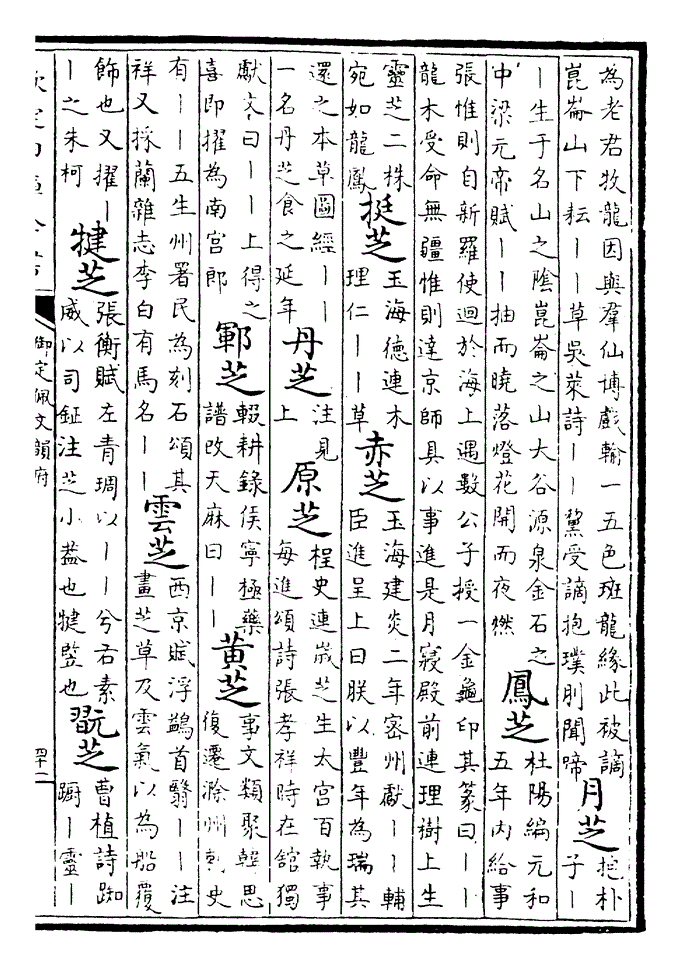 為老君牧龍因與羣仙博戲輸一五色班龍緣此被謫
崑崙山下耘丨丨草吳萊詩丨丨驚受謫抱璞刖聞啼
月芝
抱朴
子丨
丨生于名山之陰崑崙之山大谷源泉金石之
中梁元帝賦丨丨抽而曉落燈花開而夜燃
鳳芝
杜陽編元和
五年内給事
張惟則自新羅使迴於海上遇數公子授一金龜印其篆曰丨丨
龍木受命無疆惟則達京師具以事進是月寢殿前連理樹上生
靈芝二株
宛如龍鳳
挺芝
玉海德連木
理仁丨丨草
赤芝
玉海建炎二年宻州獻丨丨輔
臣進呈上曰朕以豐年為瑞其
還之本草圖經丨丨
一名丹芝食之延年
丹芝
注見
上
原芝
桯史連歲芝生太宫百執事
每進頌詩張孝祥時在館獨
獻文曰丨丨上得之
喜即擢為南宫郎
鄆芝
輟耕錄侯寧極藥
譜改天麻曰丨丨
黄芝
事文類聚韓思
復遷滁州刺史
有丨丨五生州署民為刻石頌其
祥又採蘭雜志李白有馬名丨丨
雲芝
西京賦浮鷁首翳丨丨注
畫芝草及雲氣以為船覆
飾也又擢丨
丨之朱柯
犍芝
張衡賦左青琱以丨丨兮右素
威以司鉦注芝小葢也犍豎也
翫芝
曹植詩踟
蹰丨靈丨
欽定四庫全書
御定佩文韻府
四十一